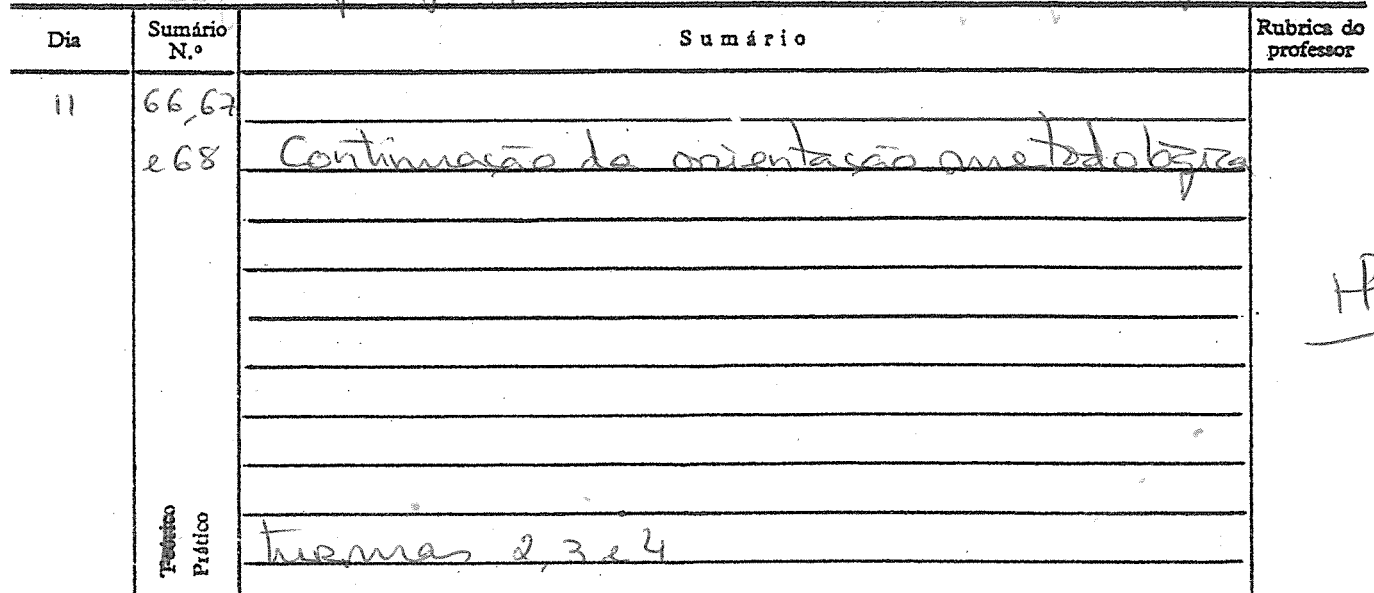 Dia Sumário N.º Sumário Rubrica do professor
11 66, 67
e 68 Continuação da orientação metodológica
HP
Teórico
Prático
turmas 2, 3 e 4